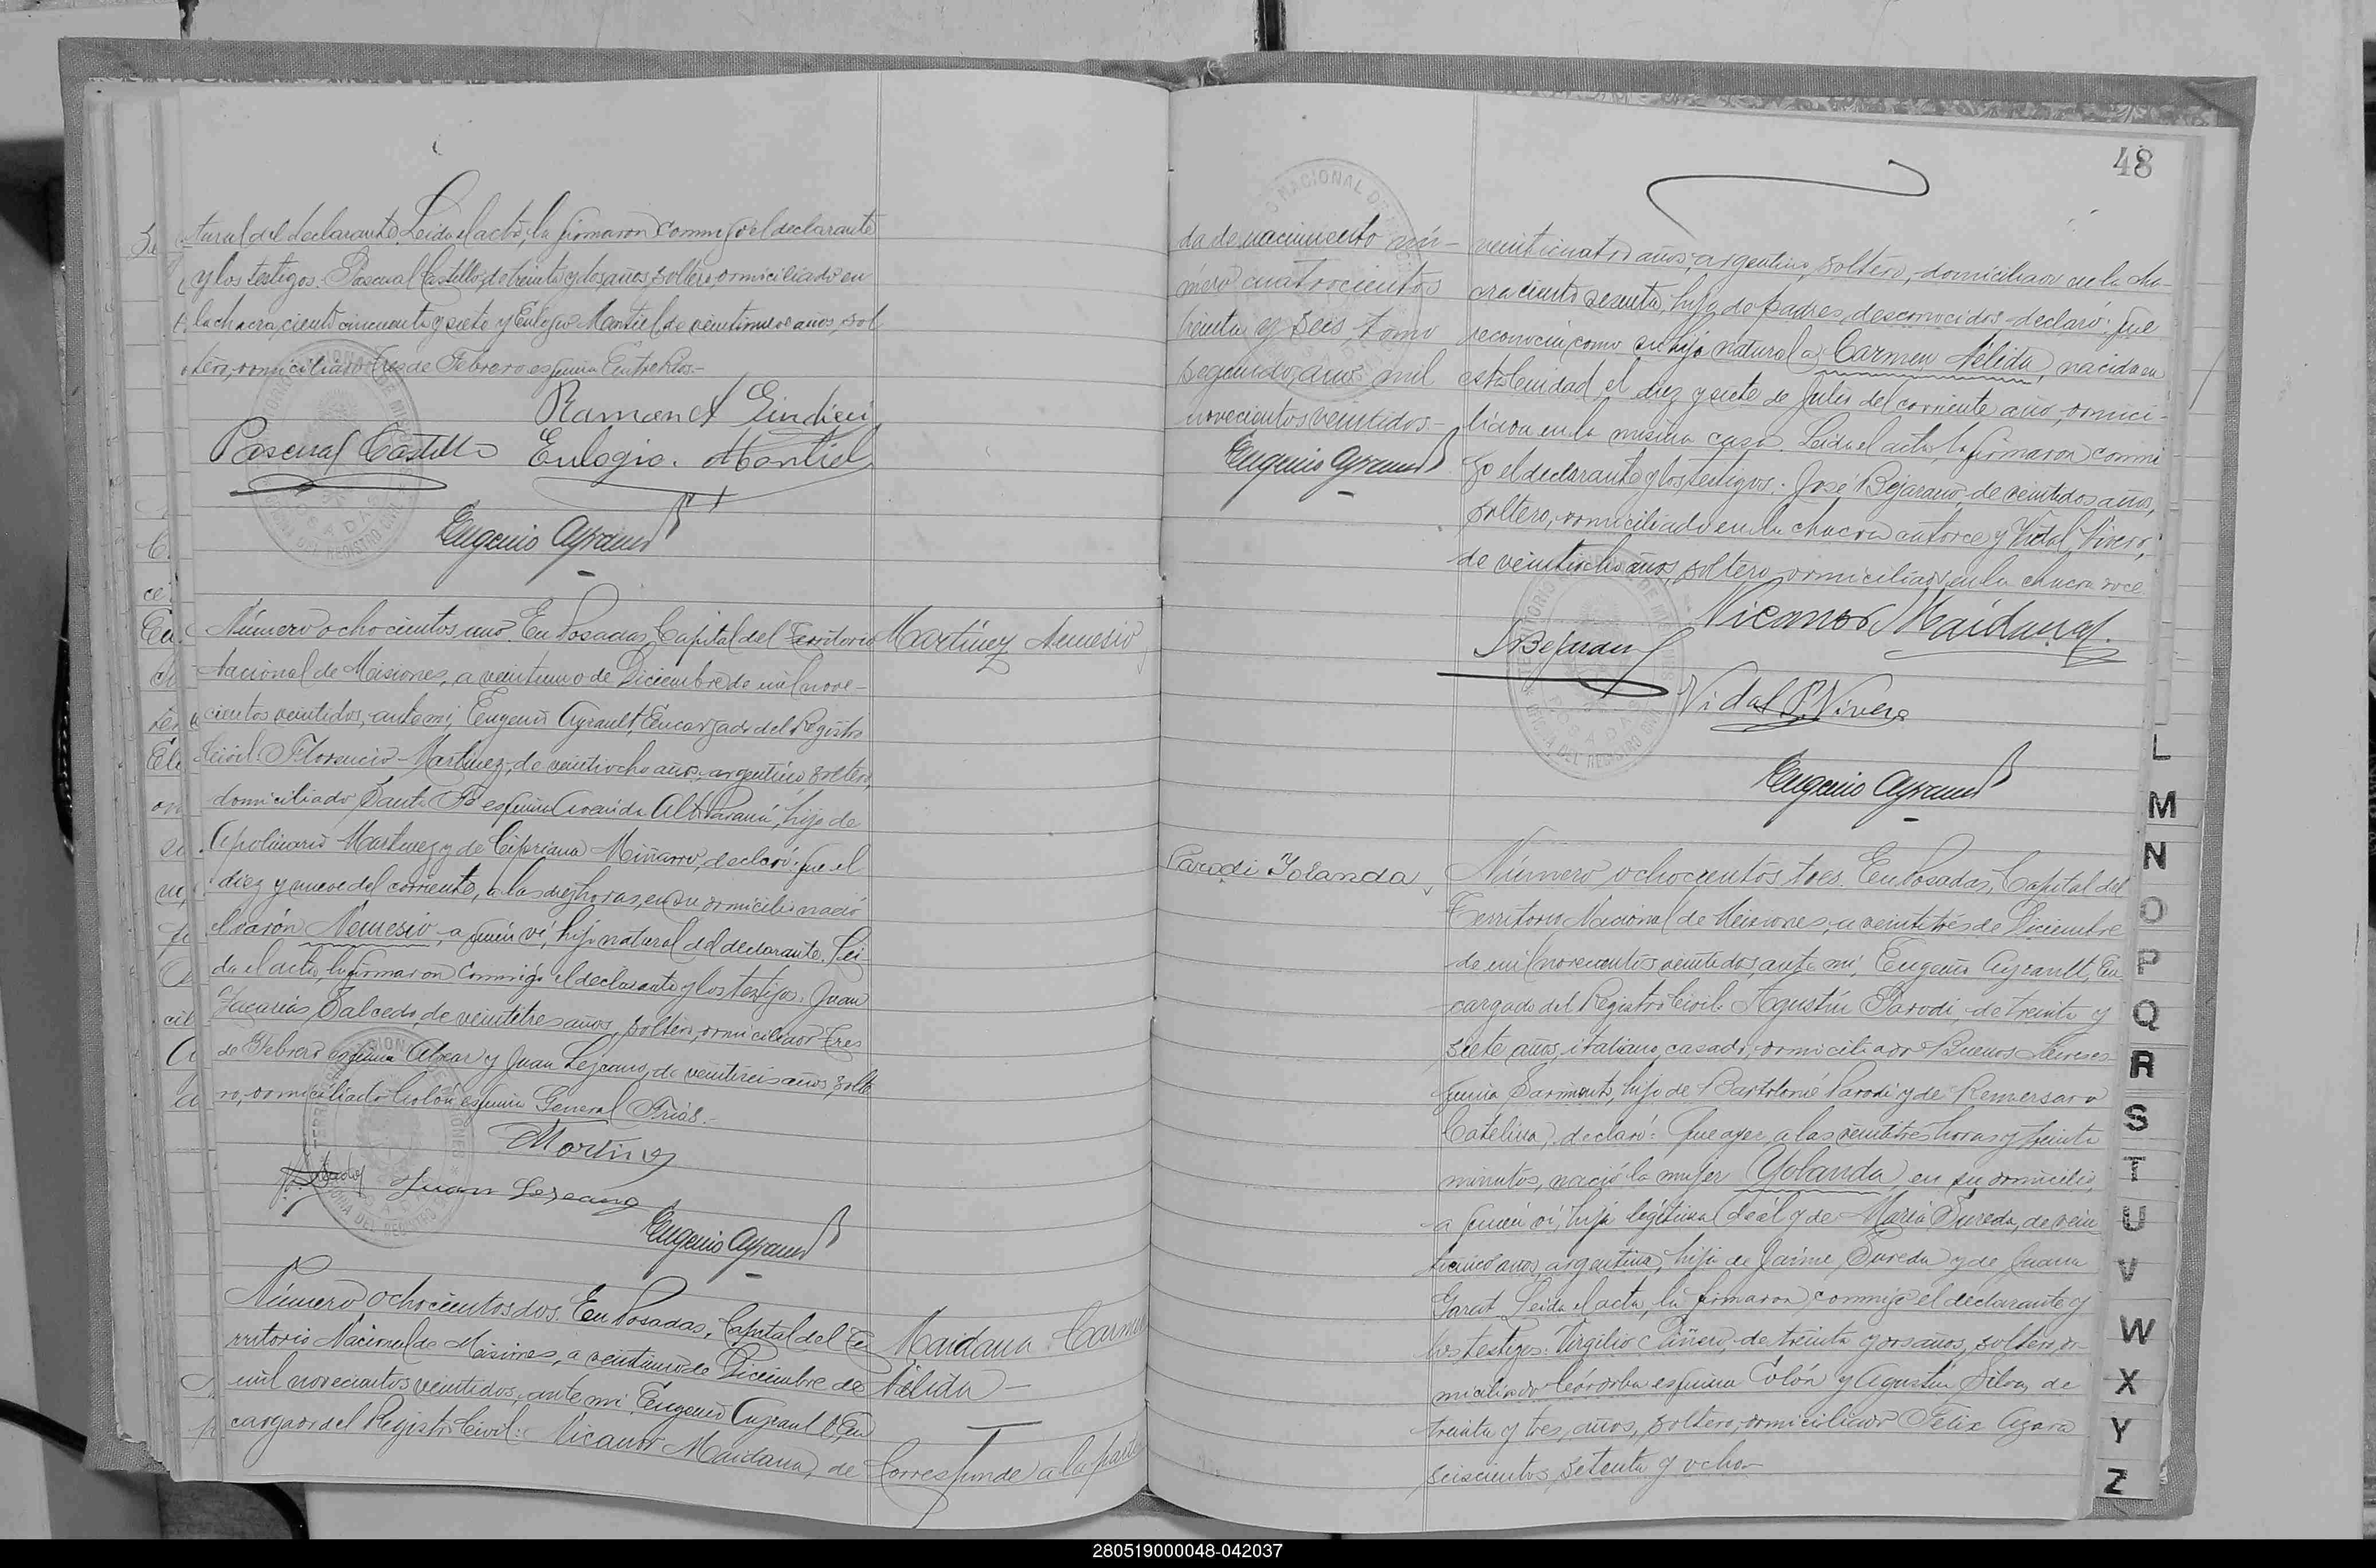 48
tural del declarante. Leida el acta, la firmaron conmigo el declarante
y los testigos: Pascual Castillo, de treinta y dos años, soltero, domiciliado en
la chacra ciento cincuenta y siete y Eulogio Montiel, de veintinueve años, sol
tero, domiciliado Tres de Febrero esquina Entre Rios.-
Ramon A
Pascual Castillo Eulogio Montiel
Eugenio Ayrault
Número ochocientos uno. En Posadas, Capital del Territorio
Nacional de Misiones, a veintiuno de Diciembre de mil nove-
cientos veintidos, ante mi, Eugenio Ayrault, Encargado del Registro
Civil: Florencio Martinez, de veintiocho años, argentino, soltero,
domiciliado Santa Fé esquina Avenida Alto Paraná, hijo de
Apolinario Martinez y de Cipriana Miñarro, declaró: que el
diez y nueve del corriente, a las diez horas, en su domicilio nació
el varón Nemesio, a quien ví, hijo natural del declarante. Lei-
da el acta, la firmaron conmigo el declarante y los testigos: Juan
Zacarias Salcedo, de veintitres años, soltero, domiciliado Tres
de Febrero esquina Alvear y Juan Lezcano, de veintiseis años, solte
ro, domiciliado Colón esquina General Frias.-
Martinez
Juan Lezcano
Eugenio Ayrault
Número ochocientos dos. En Posadas, Capital del Te
rritorio Nacional de Misiones, a veintiuno de Diciembre de
mil novecientos veintidos, ante mi, Eugenio Ayrault, En
cargado del Registro Civil: Nicanor Maidana, de
Martínez Nemesio
Maidana Carmen
Nélida -
Corresponde a la parti
da de nacimiento nú-
mero cuatrocientos
treinta y seis, tomo
segundo, año mil
novecientos veintidos.-
Eugenio Ayrault
veinticuatro años, argentino, soltero, domiciliado en la cha-
cra ciento sesenta, hijo de padres desconocidos declaró: que
reconocia como su hija natural a Carmen Nélida, nacida en
esta ciudad, el diez y siete de Julio del corriente año, domici-
liada en la misma casa. Leida el acta, la firmaron conmi
go el declarante y los testigos: José Bejarano, de veintidos años,
soltero, domiciliado en la chacra catorce y Vidal Vivero,
de veintiocho años, soltero domiciliado en la chacra doce
Nicanor Maidana
J Bejarano
Vidal Vivero
Eugenio Ayrault
Parodi Yolanda
Número ochocientos tres. En Posadas, Capital del
Territorio Nacional de Misiones, a veintitrés de Diciembre
de mil novecientos veintidos, ante mí, Eugenio Ayrault, En
cargado del Registro Civil: Agustín Parodi, de treinta y
siete años, italiano, casado, domiciliado Buenos Aires es
quina Sarmiento, hijo de Bartolomé Parodi y de Remersaro
Catelina, declaró: Que ayer, a las veintitrés horas y treinta
minutos, nació la mujer Yolanda en su domicilio,
a quien ví, hija legítima de él y de María Sureda, de vein
ticinco años, argentina, hija de Jaime Sureda y de Juana
Garat. Leida el acta, la firmaron conmigo el declarante y
los testigos: Virgilio Piñero, de treinta y dos años, soltero, do-
miciliado Córdoba esquina Colón y Agustin Silva, de
treinta y tres años, soltero, domiciliado Felix Azara
seiscientos setenta y ocho.-
L
M
N
O
P
Q
R
S
T
U
V
W
X
Y
Z
280519000048-042037